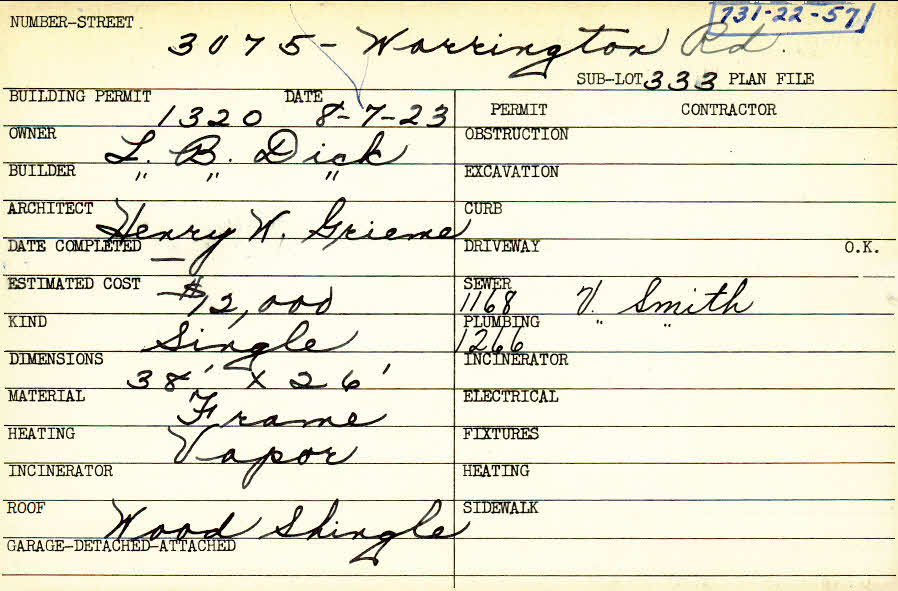 731-22-57
NUMBER-STREET 3075- Warrington Rd.
SUB-LOT 333 PLAN FILE
BUILDING PERMIT 1320 DATE 8-7-23
PERMIT CONTRACTOR
OWNER L. B. Dick
OBSTRUCTION
BUILDER " " "
EXCAVATION
ARCHITECT Henry W. Grieme
CURB
DATE COMPLETED —
DRIVEWAY O.K.
ESTIMATED COST $12,000
SEWER 1168 V. Smith
KIND Single
PLUMBING 1266 " "
DIMENSIONS 38' X 26'
INCINERATOR
MATERIAL Frame
ELECTRICAL
HEATING Vapor
FIXTURES
INCINERATOR
HEATING
ROOF Wood Shingle
SIDEWALK
GARAGE-DETACHED-ATTACHED